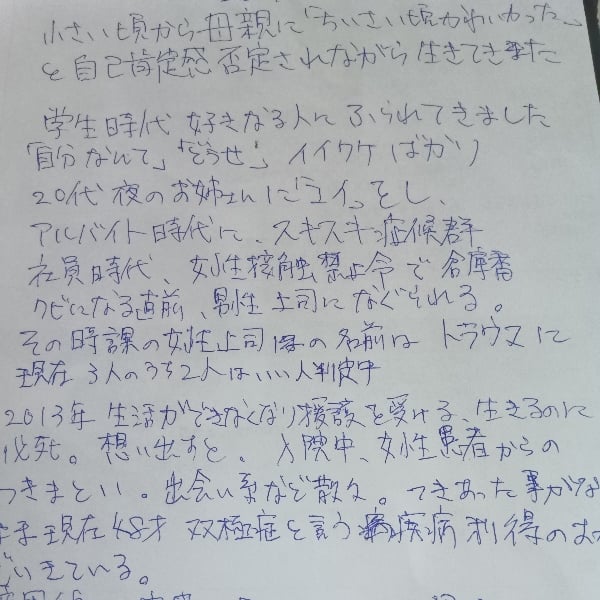 小さい頃から母親に「ちいさい頃かわいかった」
と自己肯定感否定されながら生きてきました
学生時代 好きなる人に ふられてきました
「自分なんて」「どうせ」 イイワケ ばかり
20代 夜のお姉さんに「コイ」をし、
アルバイト時代に、スキスキ症候群
社員時代、女性接触禁止令で倉庫番
クビになる直前、男性上司になぐられる。
その時課の女性上司 の名前は トラウマに
現在 3人のうち2人はいい人判定中
2013年 生活ができなくなり援護を受ける、生きるのに
必死。想い出すと。入院中、女性患者からの
つきまとい。出会い系など散々。つきあった事がな
現在48才 双極症と言う 疾病利得のお
いきている。